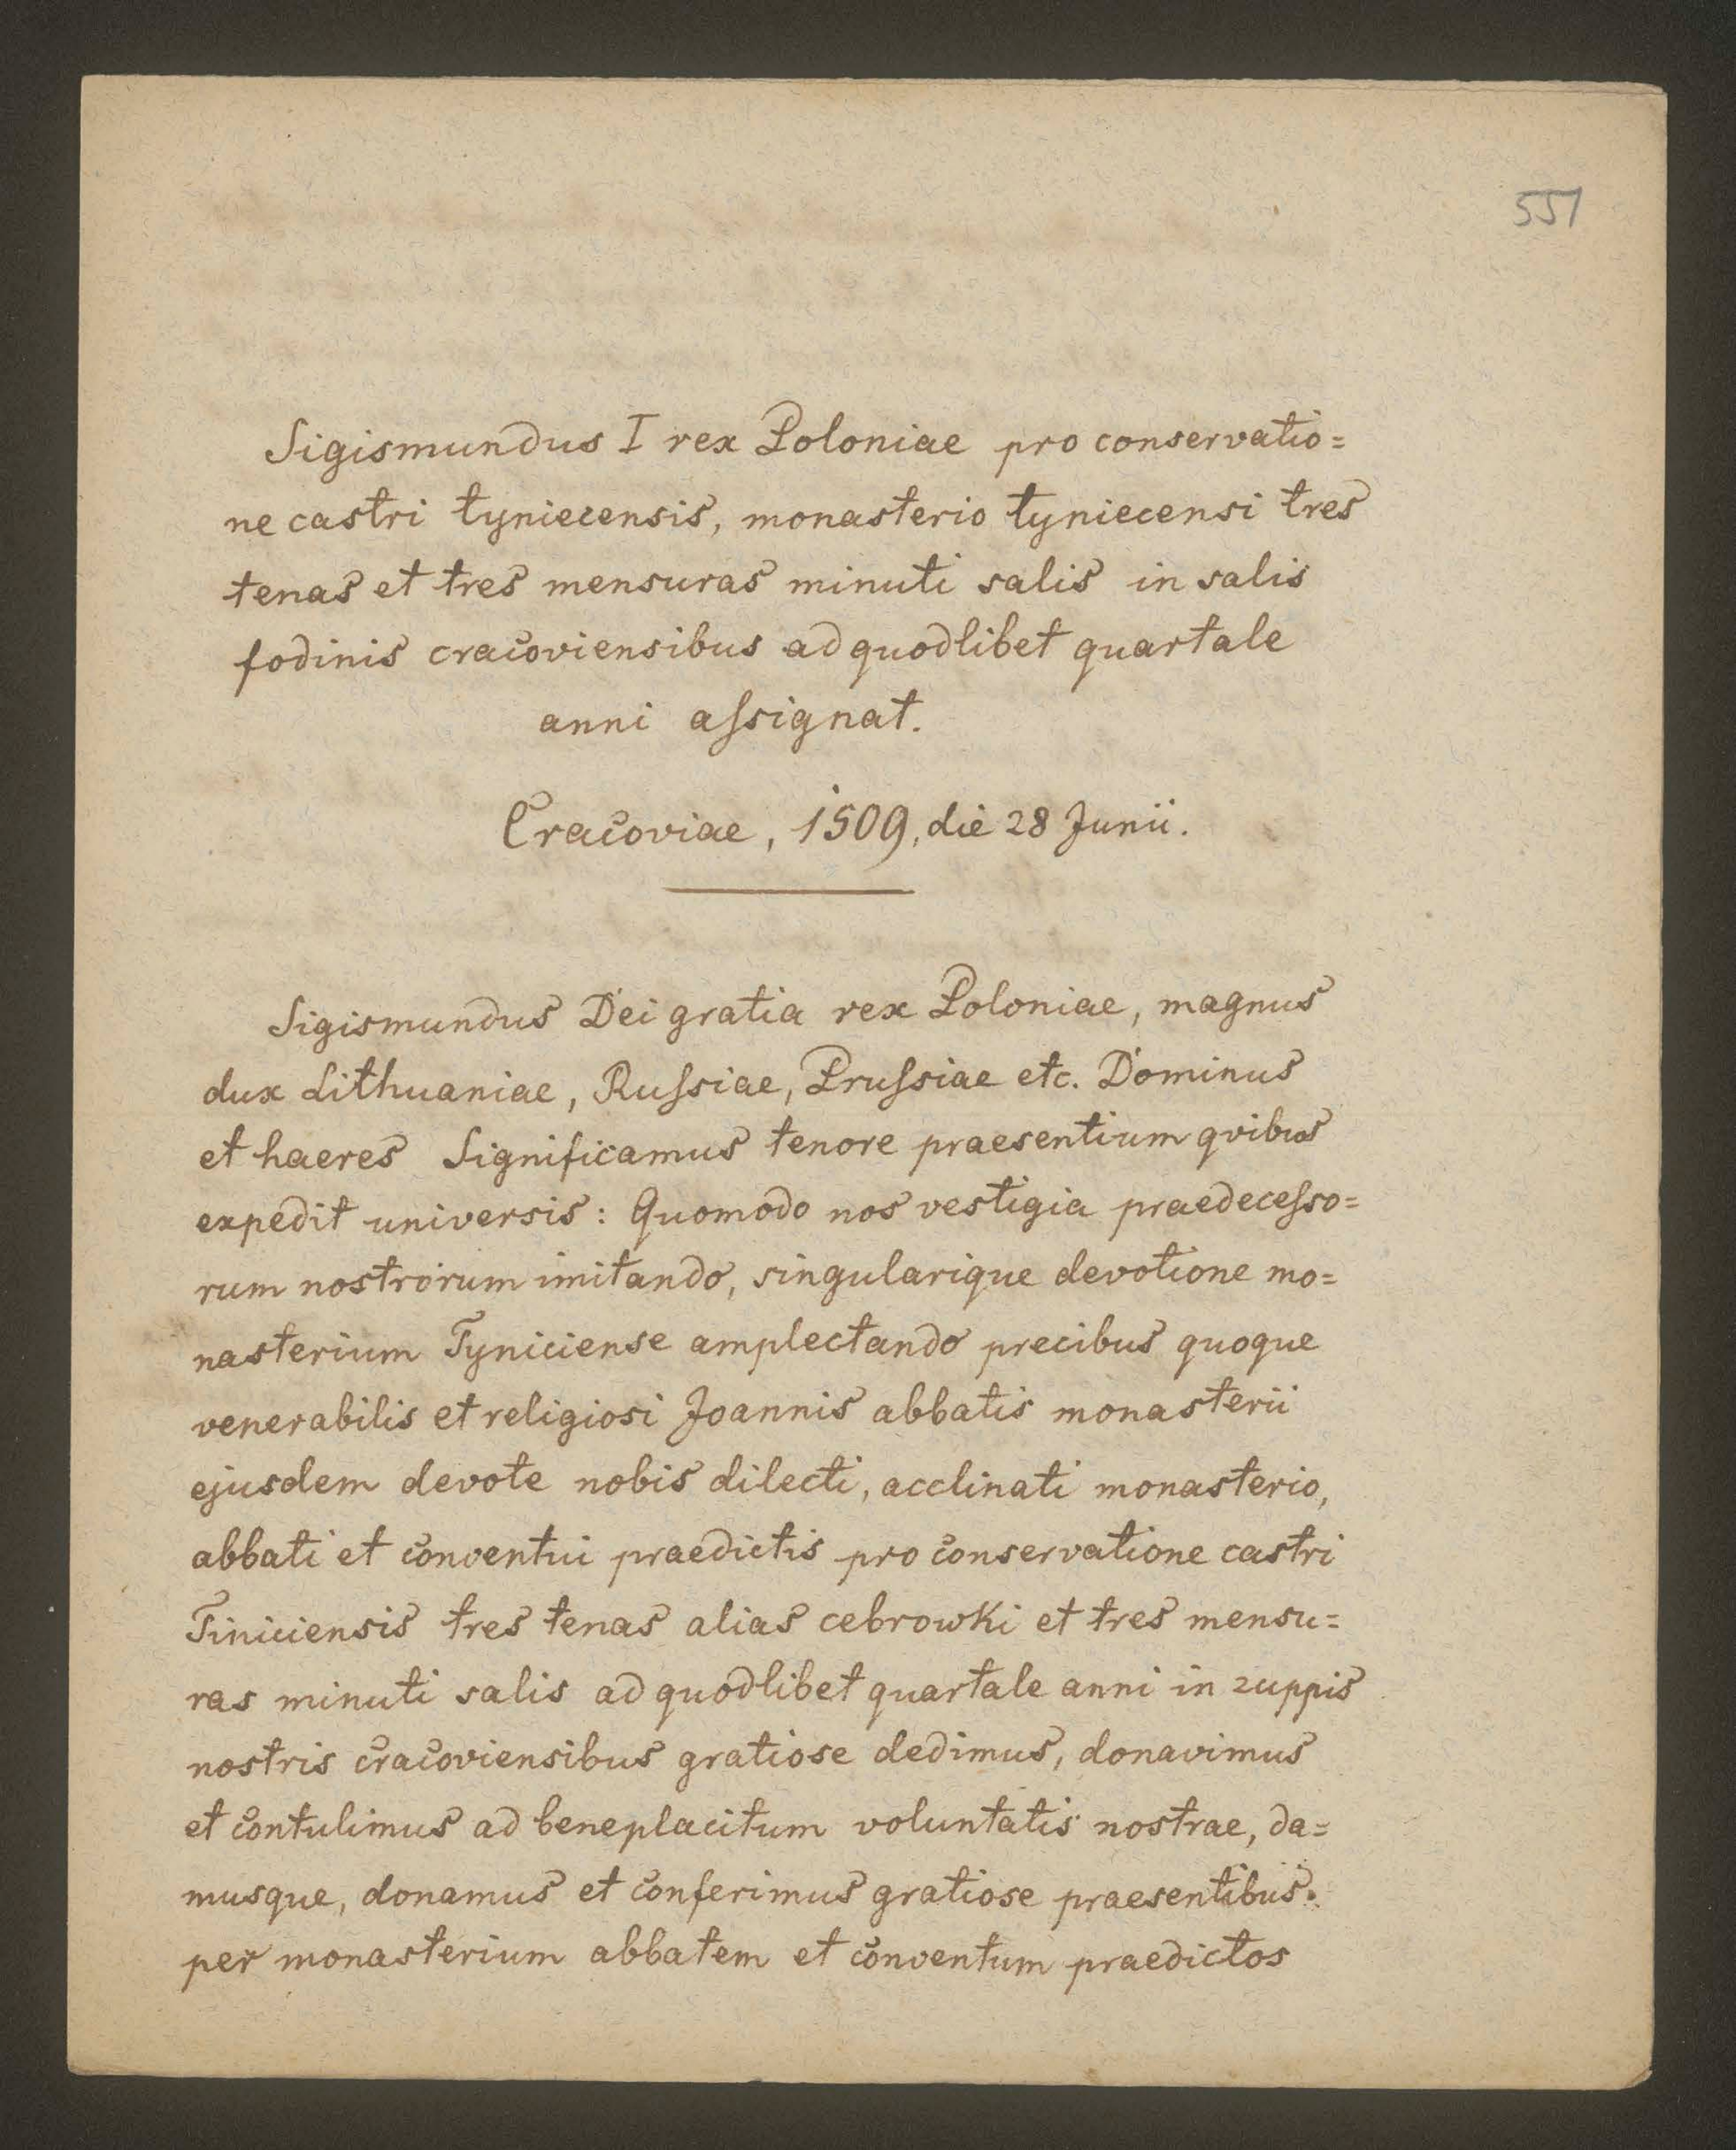 551
Sigismundus I rex Poloniae pro conservatio=
ne castri tyniecensis, monasterio tyniecensi tres
tenas et tres mensuras minuti salis in salis
fodinis cracoviensibus ad quodlibet quartale
anni aſsignat.
Cracoviae, 1509, die 28 Junii.
Sigismundus Dei gratia rex Poloniae, magnus
dux Lithuaniae, Ruſsiae, Pruſsiae etc. Dominus
et haeres Significamus tenore praesentium qvibus
expedit universis: Quomodo nos vestigia praedeceſso=
rum nostrorum imitando, singularique devotione mo=
nasterium Tyniciense amplectando precibus quoque
venerabilis et religiosi Joannis abbatis monasterii
ejusdem devote nobis dilecti, acclinati monasterio,
abbati et conventui praedictis pro conservatione castri
Tiniciensis tres tenas alias cebrowki et tres mensu=
ras minuti salis ad quodlibet quartale anni in zuppis
nostris cracoviensibus gratiose dedimus, donavimus
et contulimus ad beneplacitum voluntatis nostrae, da=
musque, donamus et conferimus gratiose praesentibus.
per monasterium abbatem et conventum praedictos